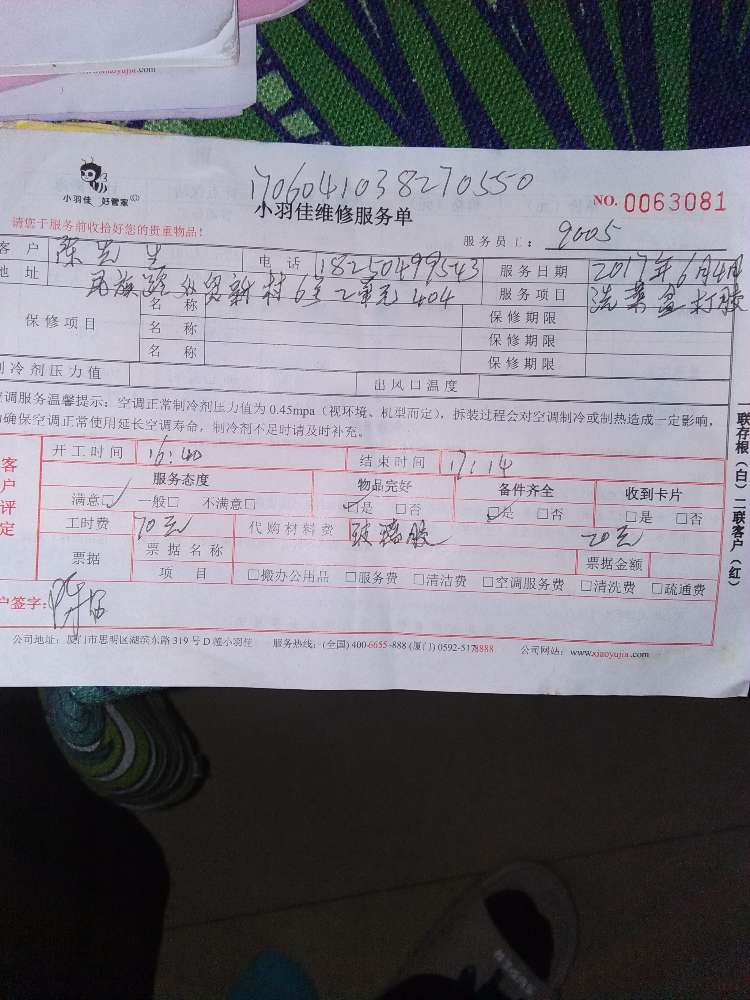 www.xiaoyujia.com
小羽佳 好管家
1706041038270550
小羽佳维修服务单
NO. 0063081
请您于服务前收拾好您的贵重物品！
服务员工： 9005
客 户 陈先生 电 话 18250499543 服务日期 2017年6月4日
地 址 民族路外贸新村6号2单元404 服务项目 洗菜盆打胶
保修项目 名 称 保修期限
名 称 保修期限
名 称 保修期限
制冷剂压力值 出风口温度
空调服务温馨提示：空调正常制冷剂压力值为 0.45mpa（视环境、机型而定），拆装过程会对空调制冷或制热造成一定影响，
确保空调正常使用延长空调寿命，制冷剂不足时请及时补充。
一联存根（白）二联客户（红）
客户评定
开工时间 16:40 结束时间 17:14
服务态度 物品完好 备件齐全 收到卡片
满意☑ 一般□ 不满意□ ☑是 □否 ☑是 □否 □是 □否
工时费 70元 代购材料费 玻璃胶 20元
票据 票据名称 票据金额
项 目 □搬办公用品 □服务费 □清洁费 □空调服务费 □清洗费 □疏通费
户签字：
公司地址：厦门市思明区湖滨东路 319 号 D 幢小羽佳 服务热线：(全国) 400-6655-888 (厦门) 0592-5178888 公司网站：www.xiaoyujia.com